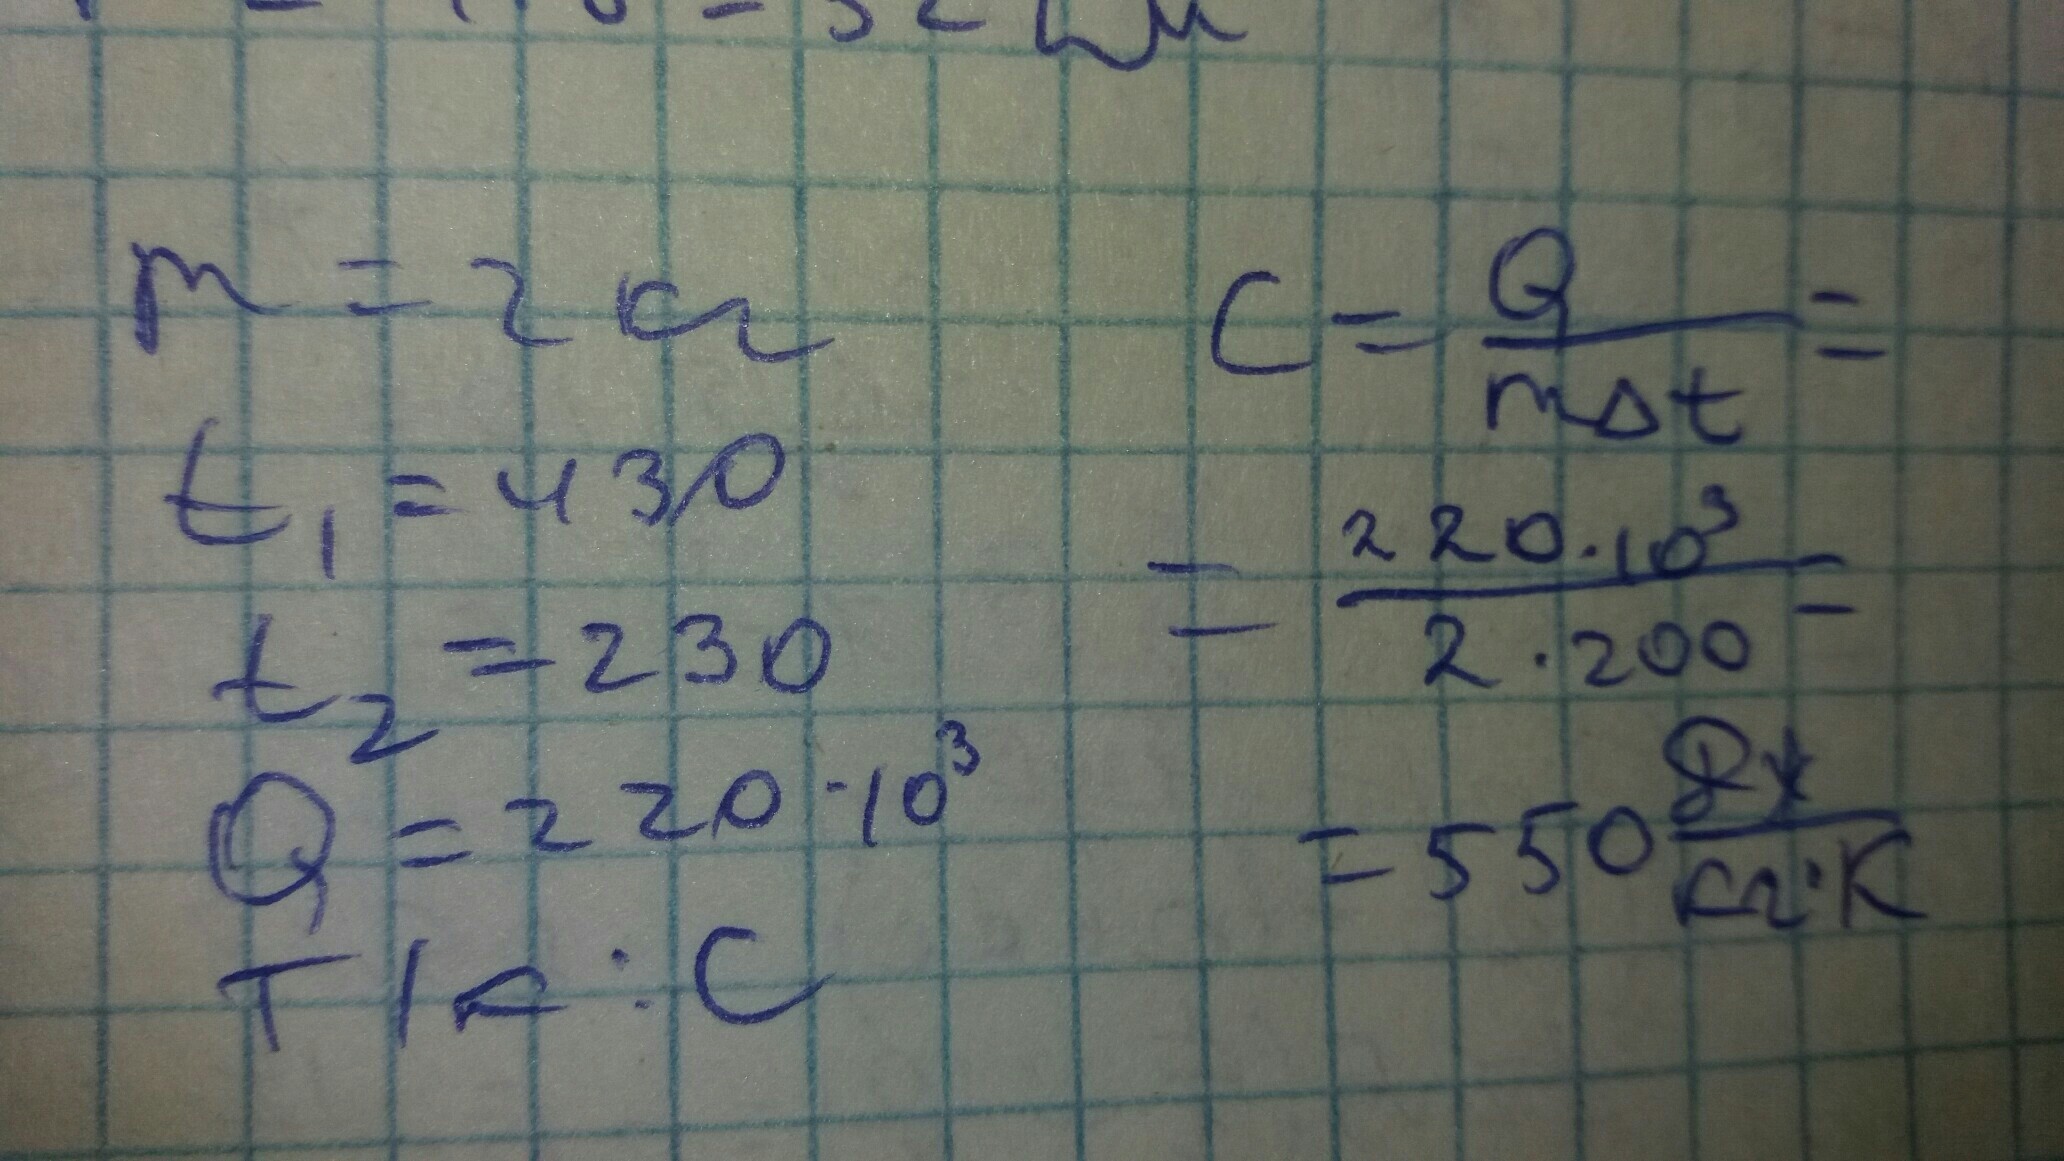 = 52
m = 2 кг
t₁ = 430
t₂ = 230
Q = 220·10³
: C
C = Q / mΔt =
= 220·10³ / 2·200 =
= 550 Дж / кг·К